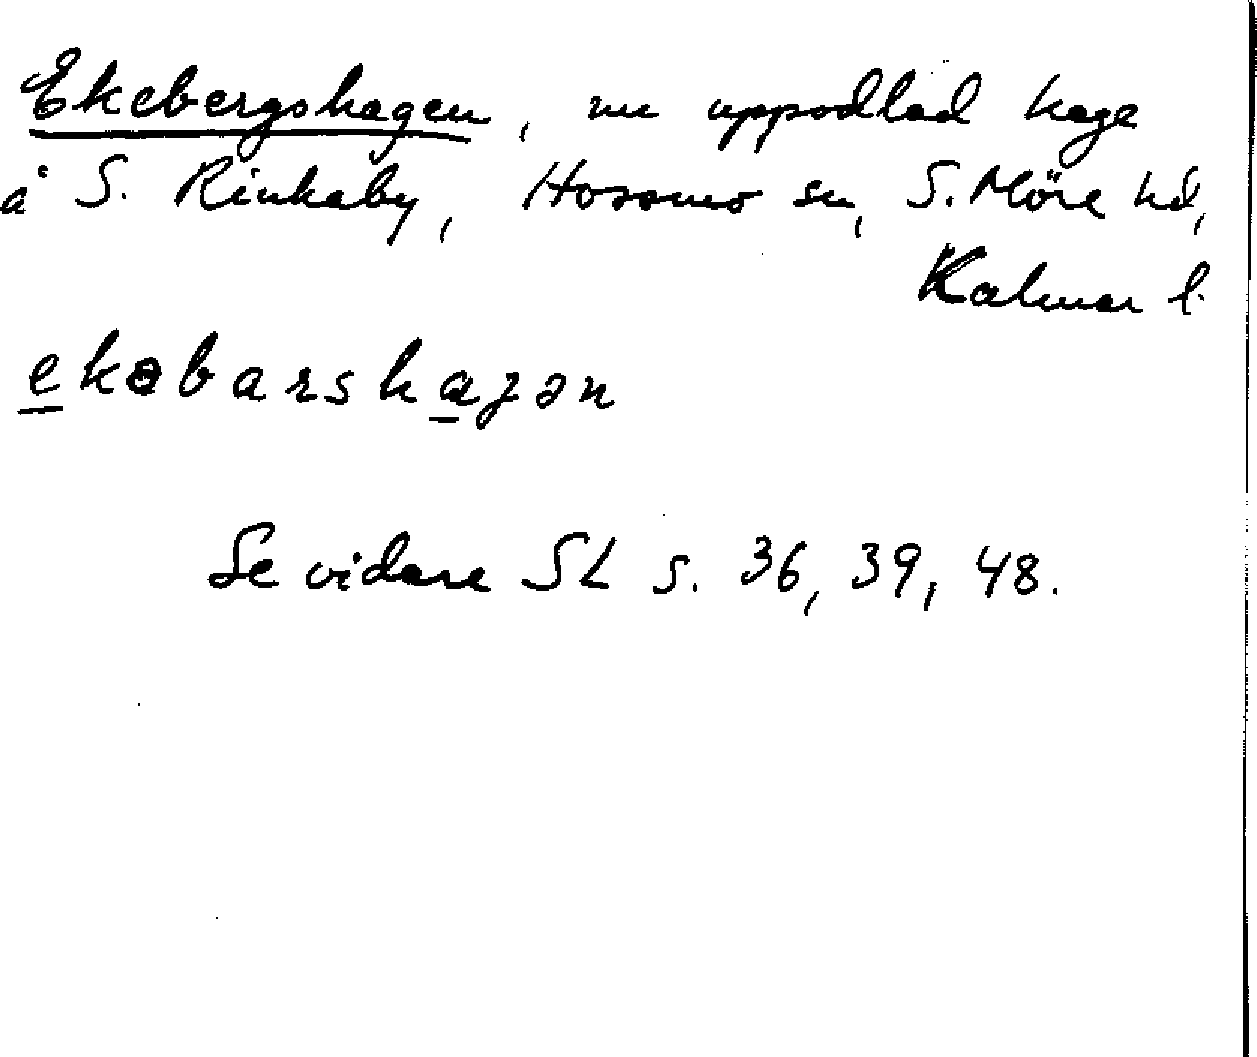 Ekebergshagen, nu uppodlad hage
å S. Rinkaby, Hossmo sn, S. Möre hd,
Kalmar l.
ekəbarshagən
Se vidare SL s. 36, 39, 48.